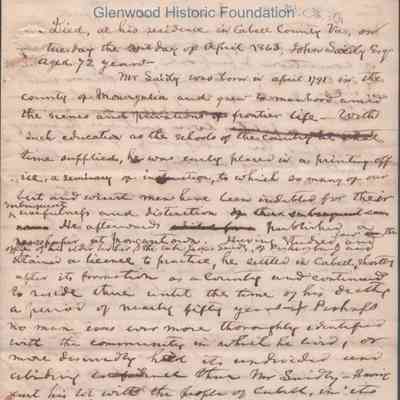 Glenwood Historic Foundation
Died, at his residence in Cabell County Va, on
tuesday the day of April 1863, John Saidy Esqr
aged 72 years
Mr Saidy was born in april 1791 in the
county of Monongalia and grew to manhood amid
the scenes and of frontier life - With
such education as the schools of the country
time supplied, he was early placed in a printing off
ice, a seminary of instruction, to which so many of our
best and wisest men have been indebted for their
subsequent
usefulness and distinction
He afterwards published
newspaper at Morgantown. Having studied
obtained a licence to practice, he settled in Cabell, shortly
after its formation as a County and continued
to reside there until the time of his death
a period of nearly fifty years - Perhaps
no man was ever more thoroughly identified
with the community in which he lived, or
more deservedly held its undivided and
abiding confidence than Mr Saidy - Having
cast his lot with the people of Cabell, in its